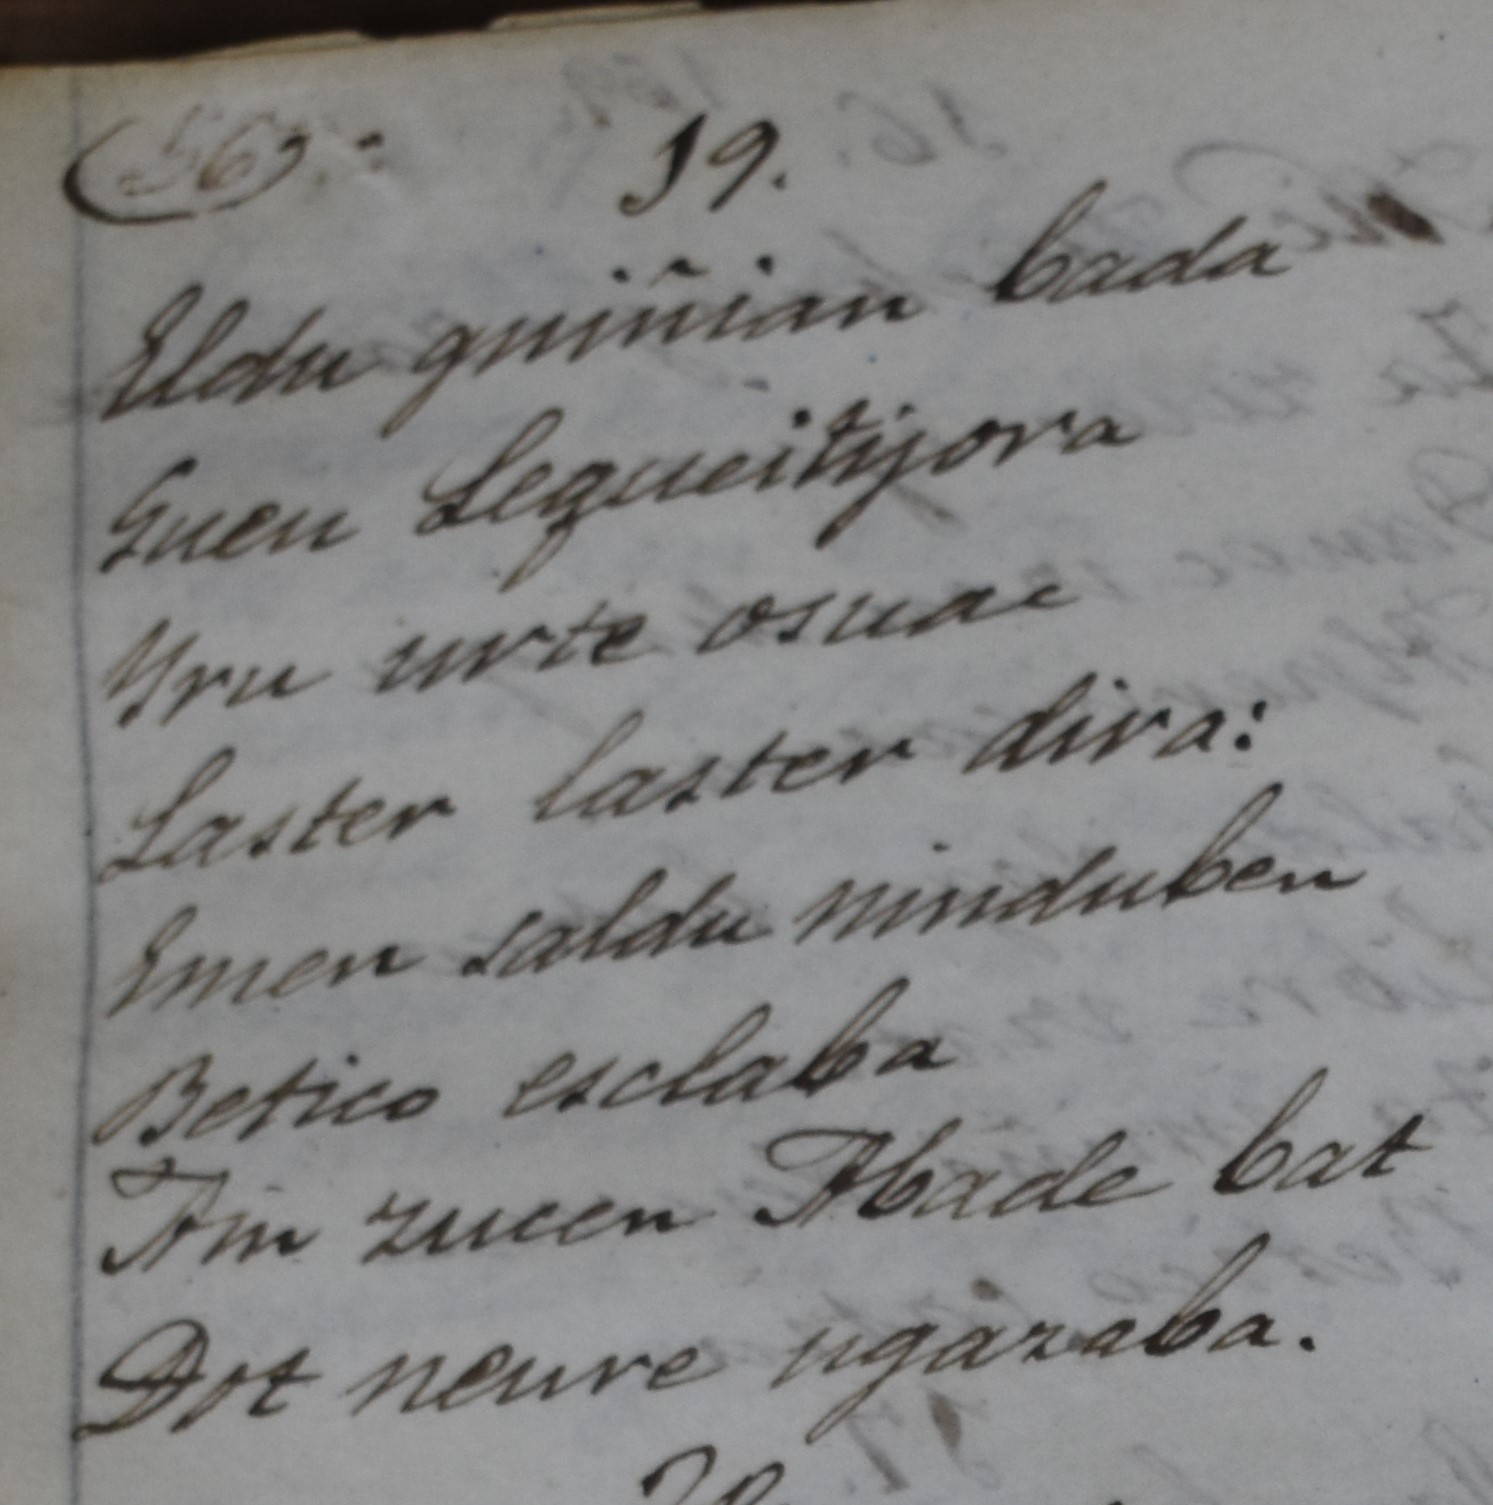 (56).
19.
Eldu guiñian bada
Guen Lequeitijora
Yru urte osuac
Laster laster dira:
Emen saldu ninduben
Betico esclaba
Amm zucen Abade bat
Dot neure ugazaba.
20